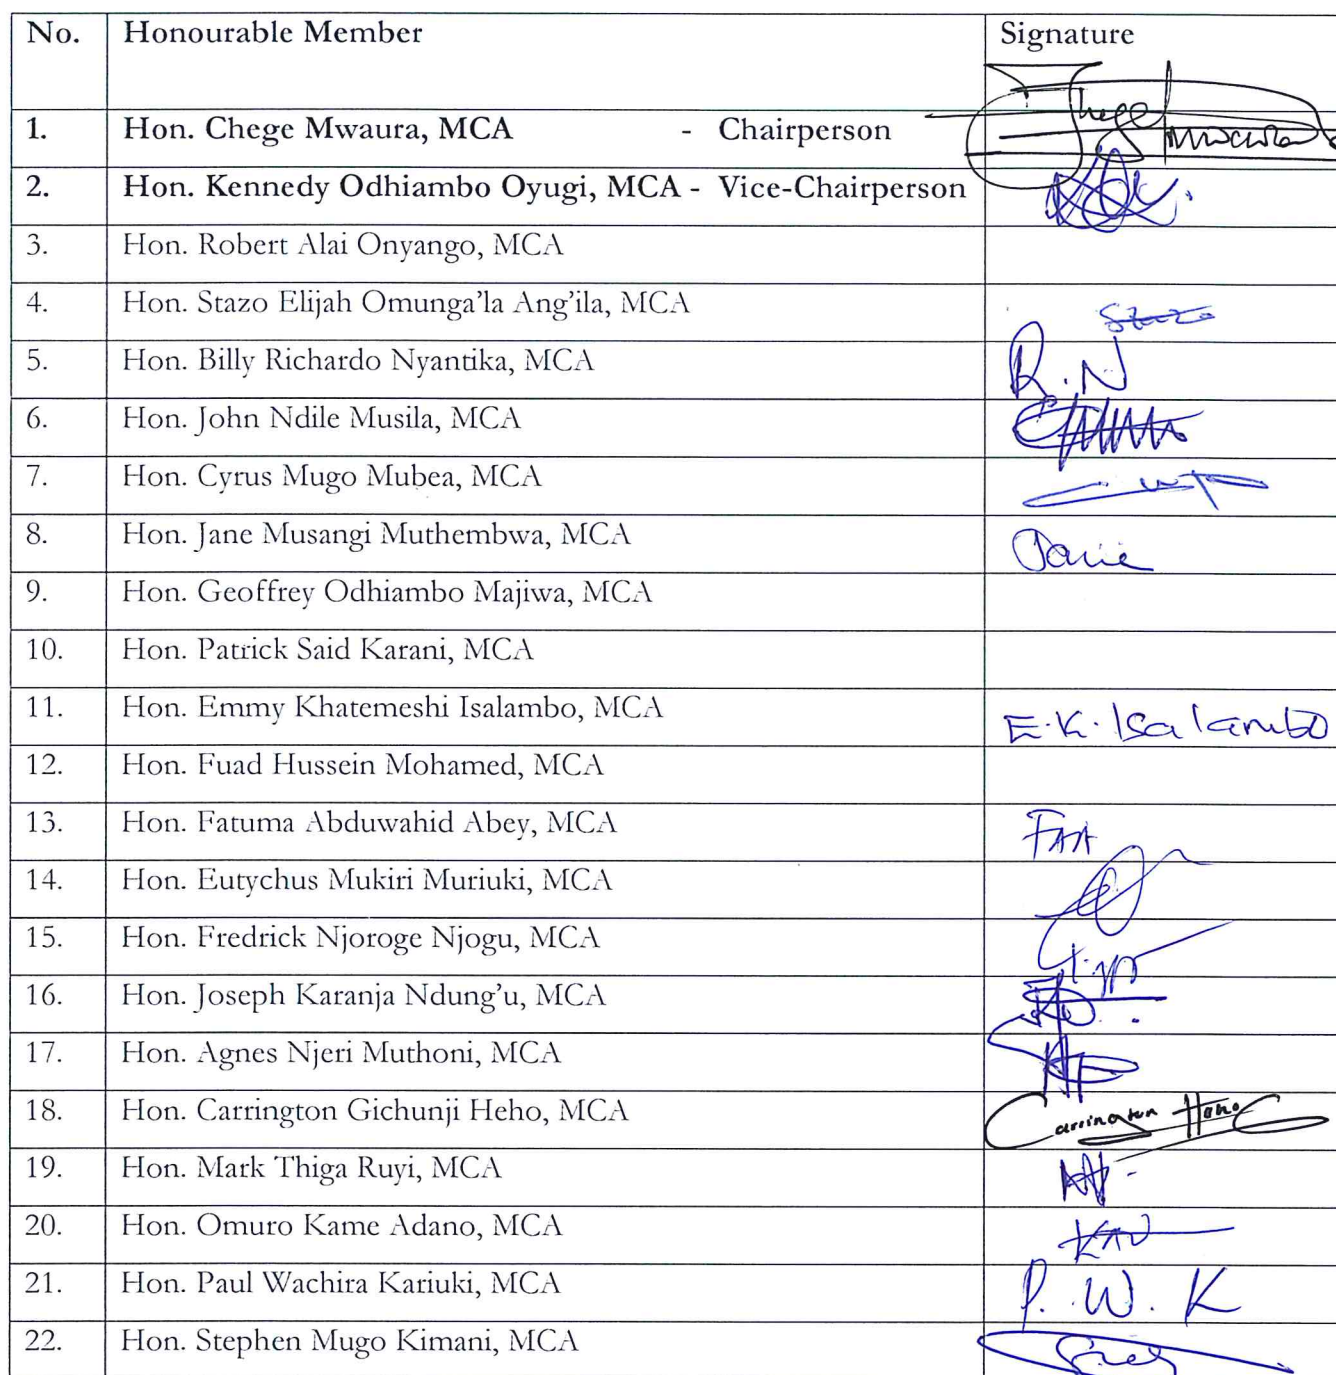 No. Honourable Member Signature
1. Hon. Chege Mwaura, MCA - Chairperson Chege Mwaura
2. Hon. Kennedy Odhiambo Oyugi, MCA - Vice-Chairperson
3. Hon. Robert Alai Onyango, MCA
4. Hon. Stazo Elijah Omunga'la Ang'ila, MCA Stazo
5. Hon. Billy Richardo Nyantika, MCA R.N
6. Hon. John Ndile Musila, MCA
7. Hon. Cyrus Mugo Mubea, MCA
8. Hon. Jane Musangi Muthembwa, MCA Jane
9. Hon. Geoffrey Odhiambo Majiwa, MCA
10. Hon. Patrick Said Karani, MCA
11. Hon. Emmy Khatemeshi Isalambo, MCA E.K. Isalambo
12. Hon. Fuad Hussein Mohamed, MCA
13. Hon. Fatuma Abduwahid Abey, MCA FAA
14. Hon. Eutychus Mukiri Muriuki, MCA
15. Hon. Fredrick Njoroge Njogu, MCA
16. Hon. Joseph Karanja Ndung'u, MCA
17. Hon. Agnes Njeri Muthoni, MCA
18. Hon. Carrington Gichunji Heho, MCA Carrington Heho
19. Hon. Mark Thiga Ruyi, MCA
20. Hon. Omuro Kame Adano, MCA
21. Hon. Paul Wachira Kariuki, MCA P. W. K
22. Hon. Stephen Mugo Kimani, MCA